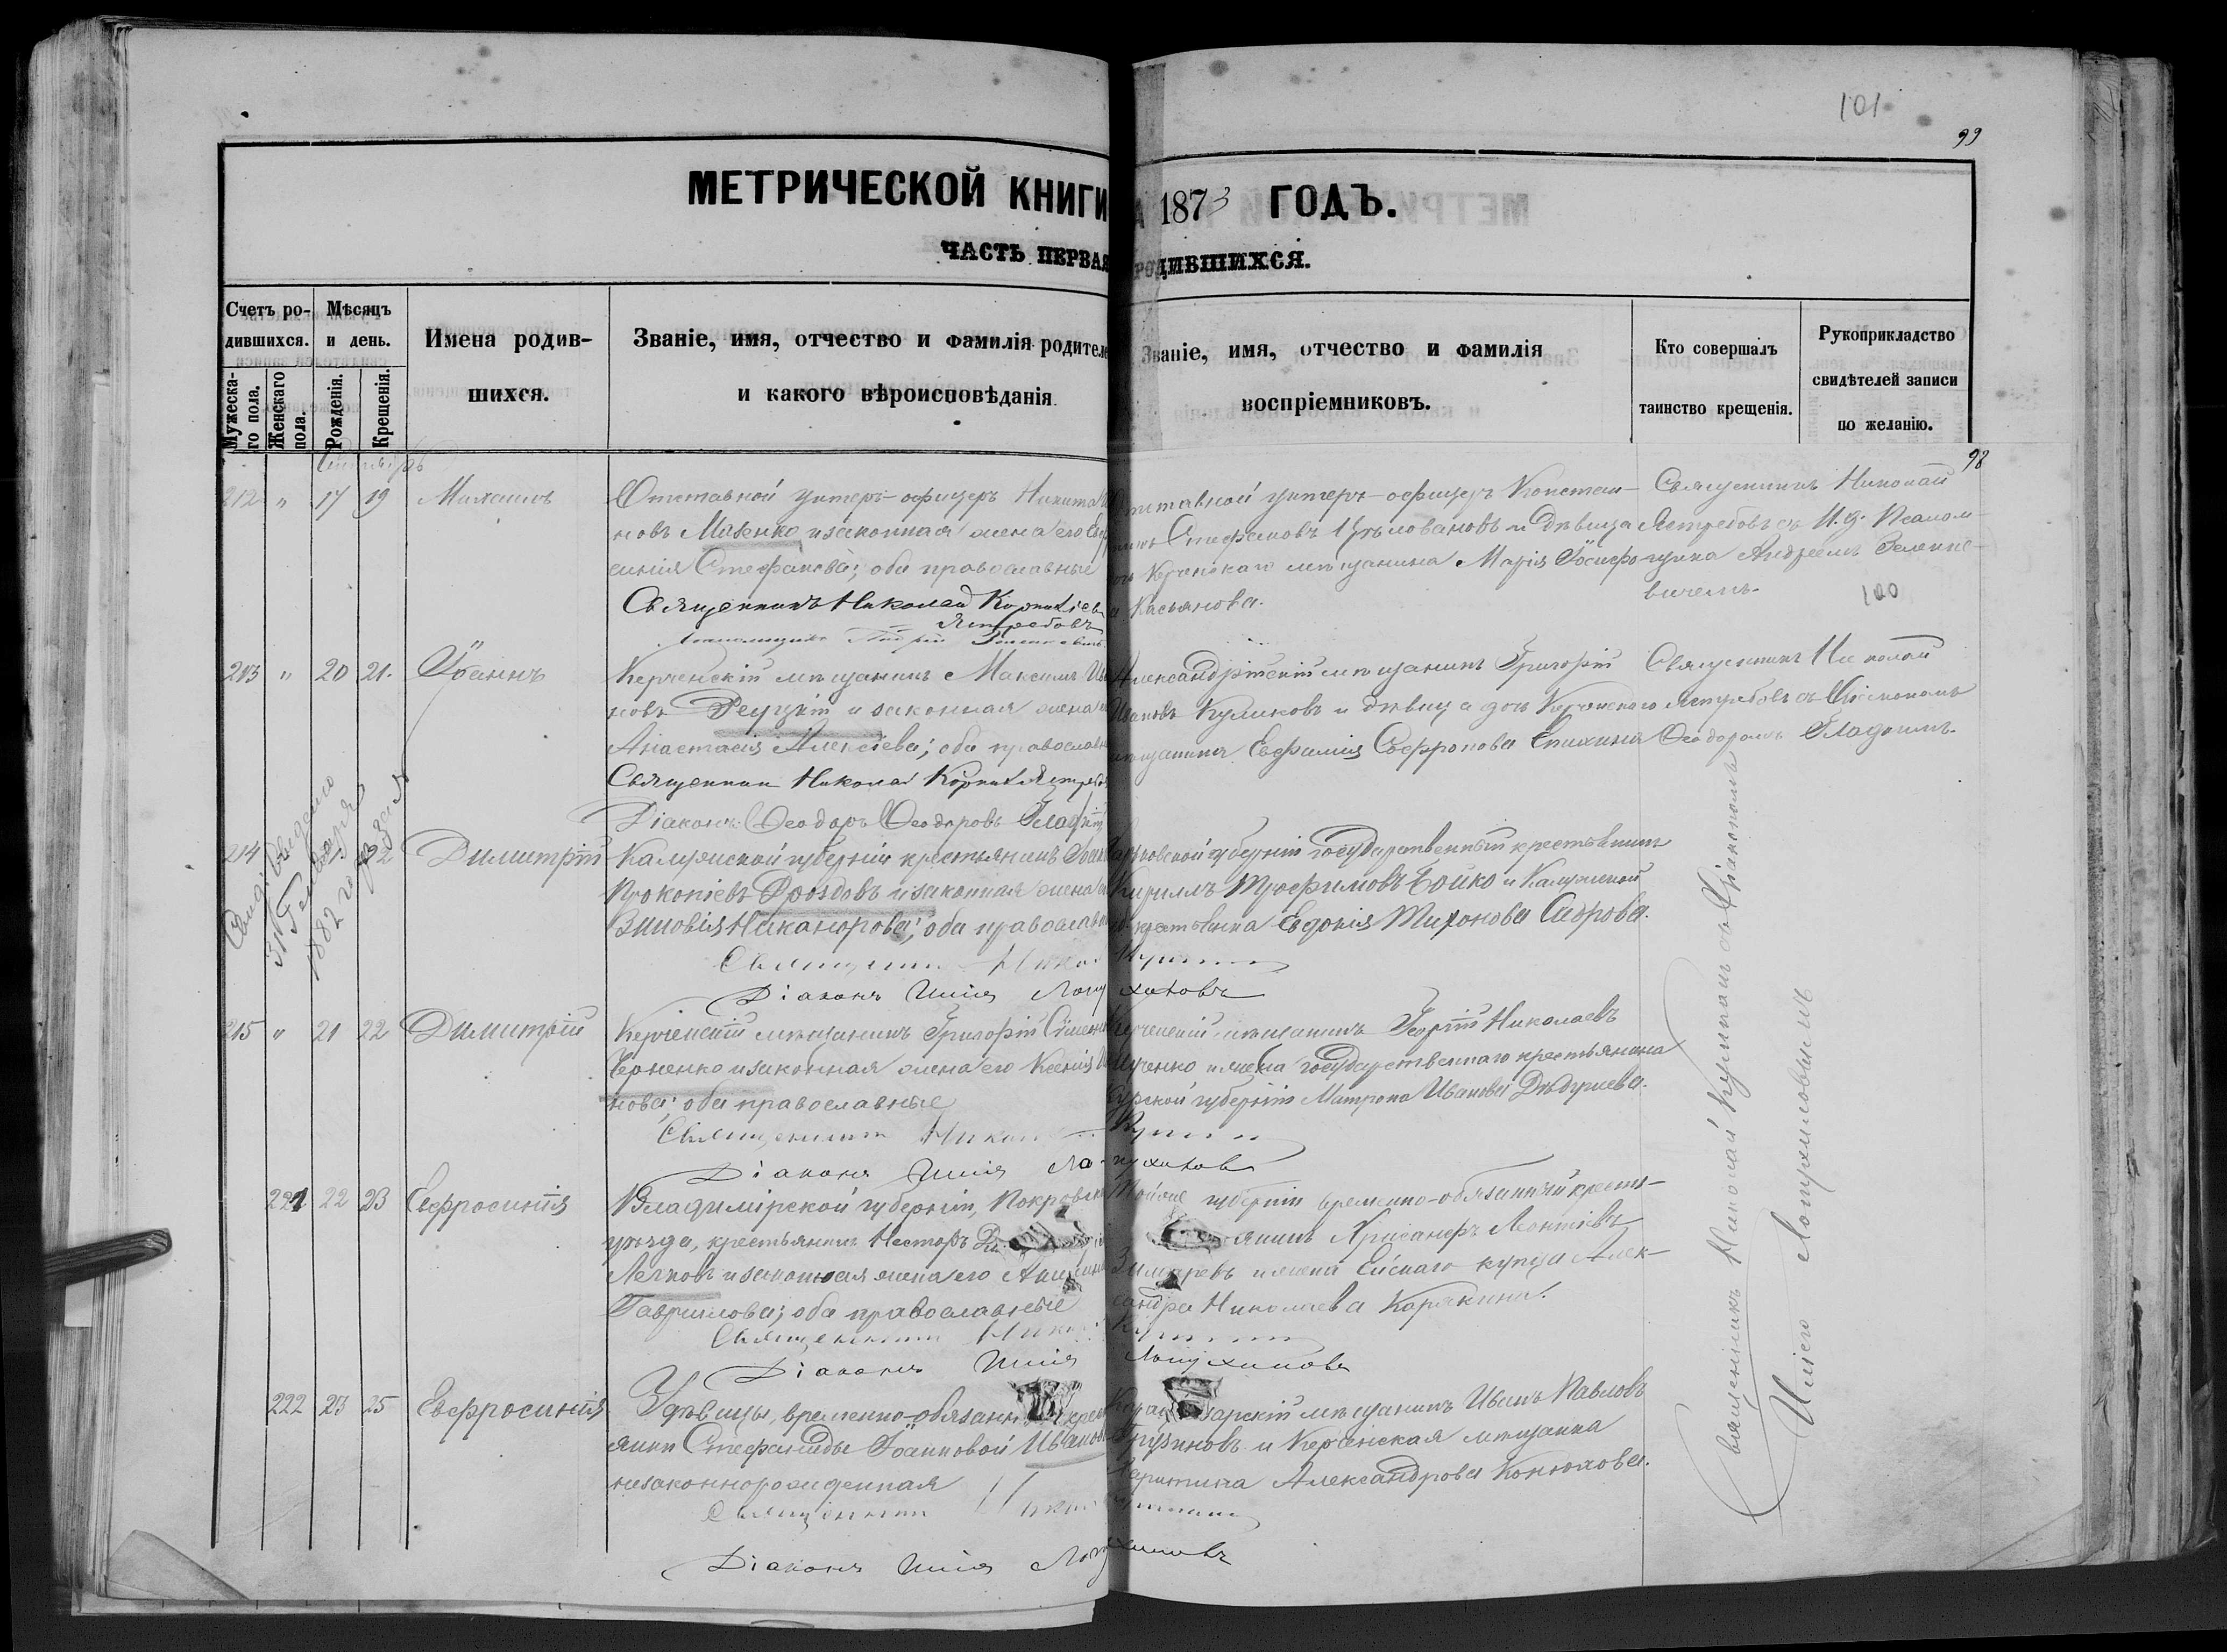 101
99
МЕТРИЧЕСКОЙ КНИГИ 1873 ГОДЪ.
ЧАСТЬ ПЕРВАЯ РОДИВШИХСЯ.
Счетъ ро-
дившихся.
Мужеска-
го пола.
Женскаго
пола.
Мѣсяцъ
и день.
Рожденія.
Крещенія.
Имена родив-
шихся.
Званіе, имя, отчество и фамилія родителе
и какого вѣроисповѣданія
Званіе, имя, отчество и фамилія
воспріемниковъ.
Кто совершалъ
таинство крещенія.
Рукоприкладство
свидѣтелей записи
по желанію.
98
212 " 17 19 Михаилъ
Отставной унтеръ-офицеръ Никита
новъ Мизенко и законная жена его
синія Стефанова; оба православные
Священникъ Николай Корниліев
Ястребовъ
Отставной унтеръ-офицеръ Констан-
Стефановъ Цѣловановъ и дѣвица
Керченскаго мѣщанина Марія Іосифо
Касьянова.
Священникъ Николай
Ястребовъ съ И. д. Псалом-
щика Андреемъ Зеленке-
вичемъ.
100
213 " 20 21. Іоаннъ
Керченскій мѣщанинъ Максимъ Ива
новъ Рецкій и законная жена
Анастасія Алексіева; оба православн
Священник Николай Корнил Ястребо
Діаконъ Ѳеодоръ Ѳеодоровъ Гладкій
Александрійскій мѣщанинъ Григорій
Ивановъ Куликовъ и дѣвица дочь Керченскаго
мѣщанина Евфимія Софронова Епихина
Священникъ Николай
Ястребовъ съ Діакономъ
Ѳеодоромъ Гладкимъ.
Выдано
31 Января
1882 года
214 22 Димитрій
Калужской губерніи крестьянинъ
Прокопіевъ Дроздовъ и законная жена
Зиновія Никанорова; оба православн
Священник Никол
Діаконъ Илія Лопухиновъ
губерніи государственный крестьянинъ
Кириллъ Трофимовъ Бойко и Калужской
крестьянка Евдокія Тихонова Сидрова.
215 " 21 22 Димитрій
Керченскій мѣщанинъ Григорій Симеон
Черненко и законная жена его Ксенія
нова; оба православные
Священник Никол
Діаконъ Илія Лопухиновъ
Керченскій мѣщанинъ Георгій Николаевъ
и жена государственнаго крестьянина
Курской губерніи Матрона Иванова Дѣдушева.
221 22 23 Евфросинія
Владимірской губерніи, Покровск
уѣзда, крестьянинъ Несторъ
Легковъ и законная жена его
Гаврилова; оба православные
Священник Никол
Діаконъ Илія Лопухиновъ
Тойже губерніи временно-обязанный кресть-
янинъ Хрисанфъ Леонтіевъ
и жена Ейскаго купца Алек-
сандра Николаева Корякина.
222 23 25 Евфросинія
Удѣвицы, временно-обязанн крес
янки Стефаниды Іоанновой Иванов
незаконнорожденная
Священник Никол
Діаконъ Илія Лопухиновъ
Карасубазарскій мѣщанинъ Иванъ Павловъ
Грузиновъ и Керченская мѣщанка
Харитина Александрова Конюхова.
Священникъ Николай Куппкамъ съ Діакономъ
Иліею Лопухиновымъ